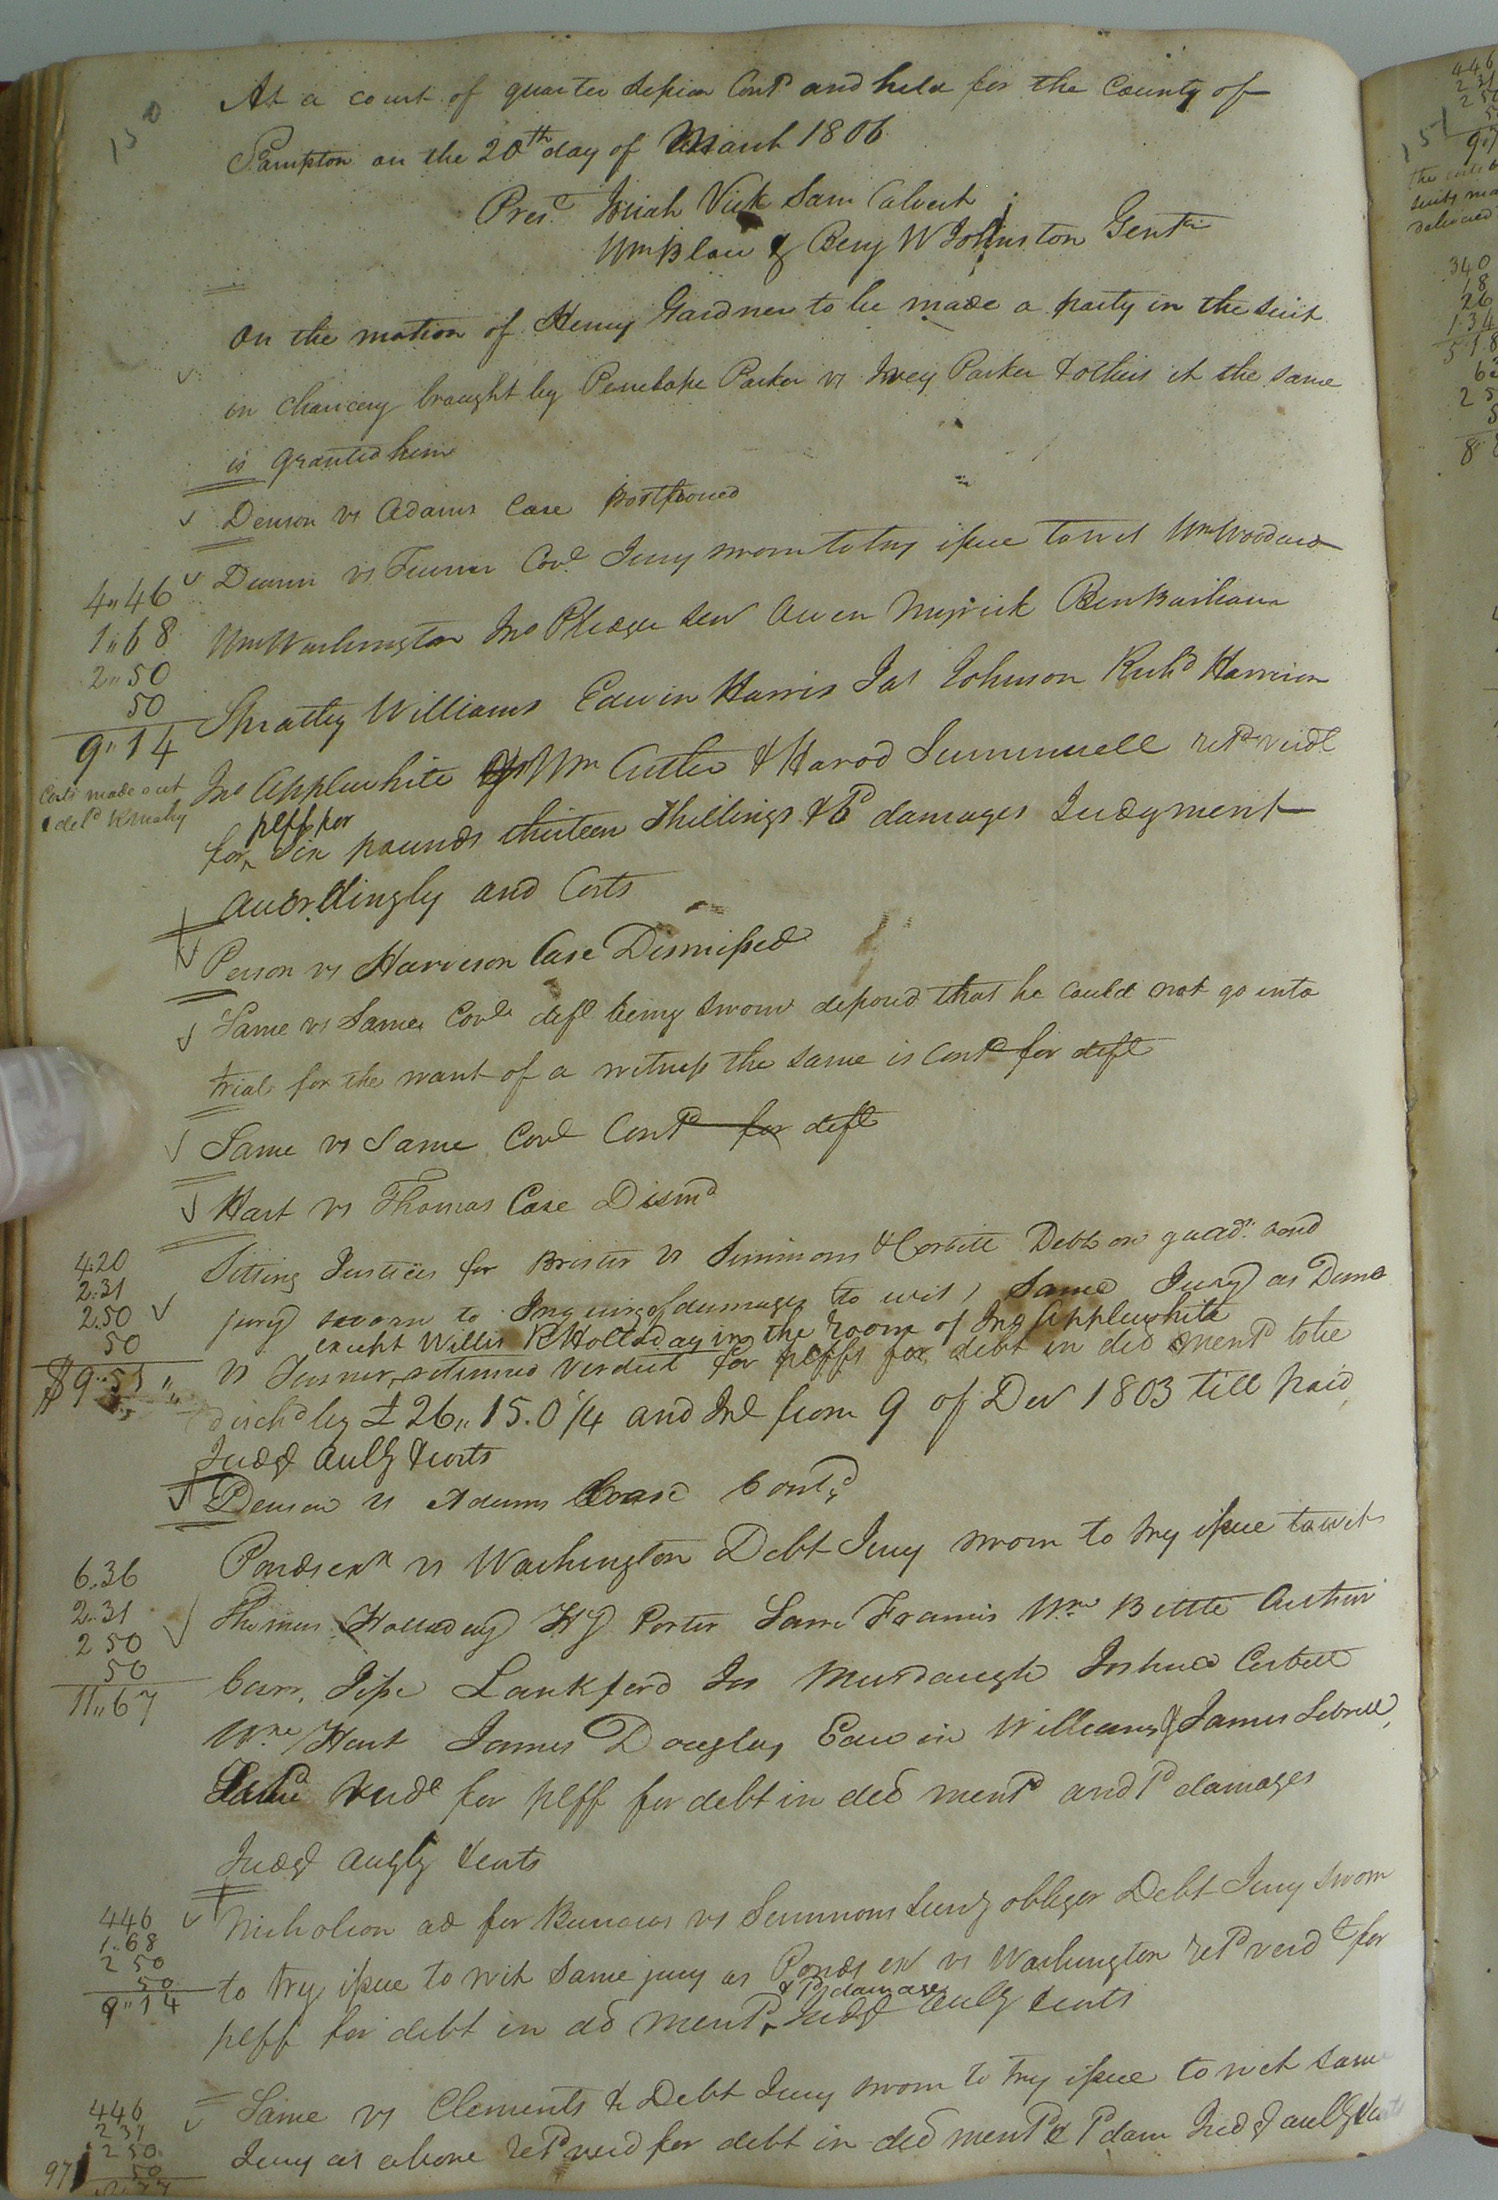 150
At a court of quarter Session Contd and held for the County of
Sampton on the 20th day of March 1806
Prest Josiah Vick Sam Calvert
Wm Blow & Benj W Johnston Gentn
On the motion of Henry Gardner to be made a party in the suit
in chancery brought by Penelope Parker vs Ivey Parker & others it the same
is granted him
Denson vs Adams Case postponed
Denson vs Turner Covt Jury sworn to try issue to wit Wm Woodard
4"46
1"68
2"50
50
9"14
Costs made out
& deld
Wm Washington Jno Pledger Senr Owen Myrick Ben Barham
Spratley Williams Edwin Harris Jas Johnson Richd Harrison
Jno Applewhite Wm Cutler & Harod Summerell retd verdt
for plff for Six pounds thirteen Shillings & 1d damages Judgment
accordingly and Costs
Person vs Harrison Case Dismissed
Same vs Same Covt deft being sworn deposed that he could not go into
trial for the want of a witness the same is contd for deft
Same vs Same Covt Contd for deft
Hart vs Thomas Case Dismd
4.20
2.31
2.50
50
$9.51
Sitting Justices for Brister vs Simmons & Corbitt Debt on guadn bond
jury sworn to Inquire of damages to wit, Same Jury as Denson
except Willis R Holladay in the room of Jno Applewhite
vs Turner returned verdict for plffs for debt in decl mentd to be
dischd by £26"15.0¼ and Int from 9 of Decr 1803 till paid,
Judgt accly & costs
Denson vs Adams Case Contd
6.36
2.31
2 50
50
11"67
Ponds exr vs Washington Debt Jury sworn to try issue to wit
Thomas Holladay Hy Porter Saml Francis Wm Bittle Arthur
Carr, Jesse Lankford Jas Murdaugh Joshua Corbett
Wm Hart James Douglas Edwin Williams & James Sebrell,
Retd Verdt for plff for debt in decl mentd and 1d damages
Judgt accgly & costs
446
1.68
2 50
50
9"14
Nicholson ad for Burrows vs Simmons Surv obligor Debt Jury sworn
to try issue to wit same jury as Ponds exr vs Washington retd verdt for
& 1d damages
plff for debt in dd mentd Judgt accly & costs
446
231
250
50
97
Same vs Clements & Debt Jury sworn to try issue to wit same
Jury as above retd verd for debt in decl mentd & 1d dam Judgt accly & costs
151
446
231
250
the costs
delivered
340
18
26
1.34